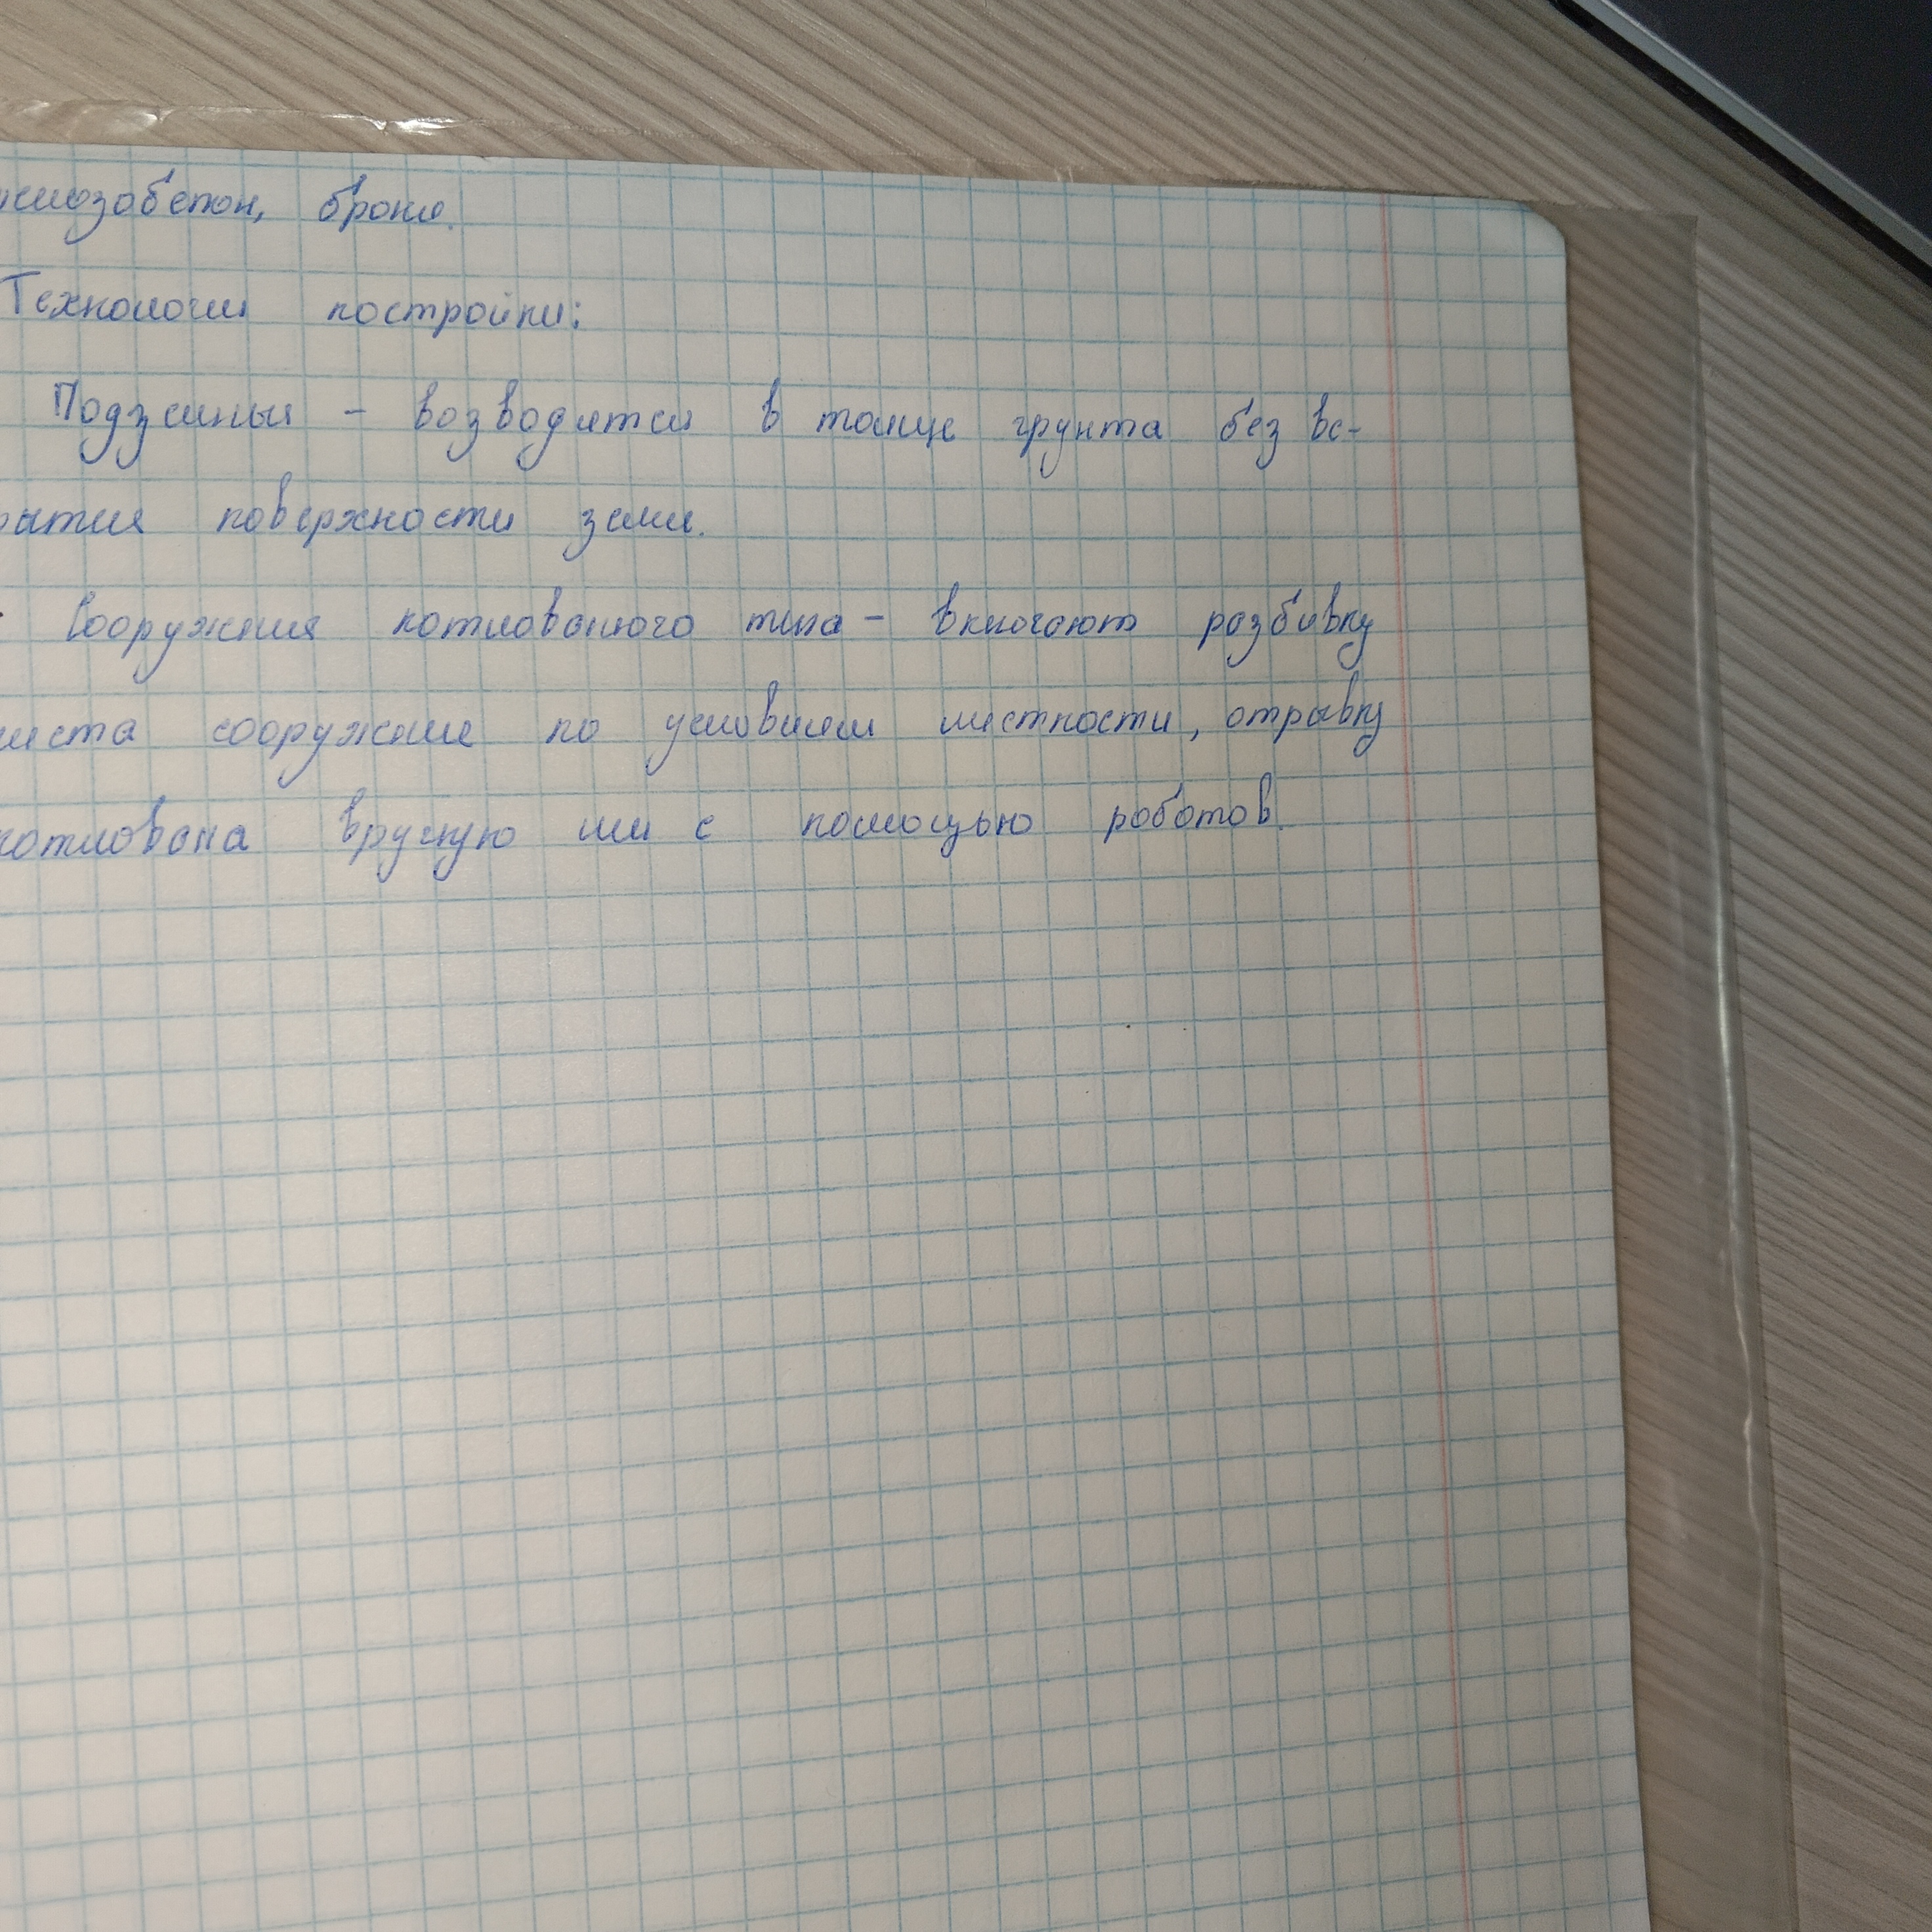 железобетон, броня.
Технологии постройки:
Подземные - возводятся в толще грунта без вс-
рытия поверхности земли.
Сооружения котлованого типа - включают разбивку
места сооружение по условиям местности, отрывку
котлована вручную или с помощью роботов.